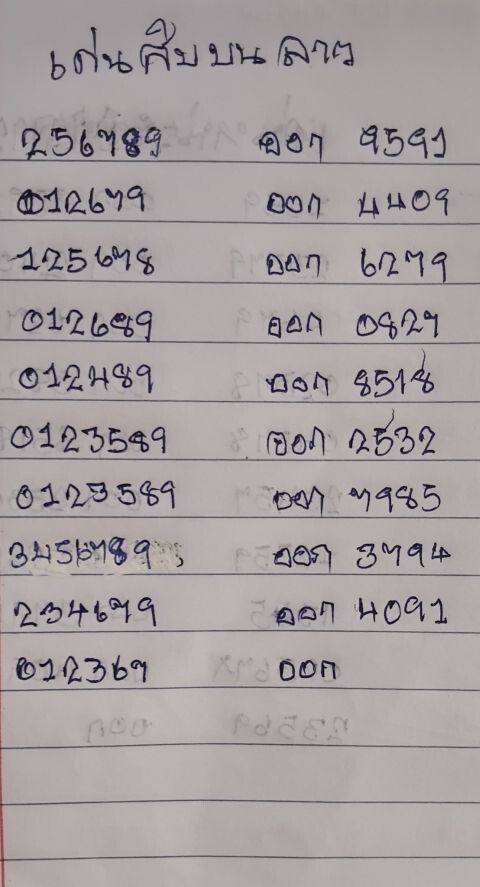 เด่นสิบบน ลาว
256789 ออก 9591
012679 ออก 4409
125678 ออก 6279
012689 ออก 0827
012489 ออก 8518
0123589 ออก 2532
0123589 ออก 7985
3456789 ออก 3794
234679 ออก 4091
012367 ออก